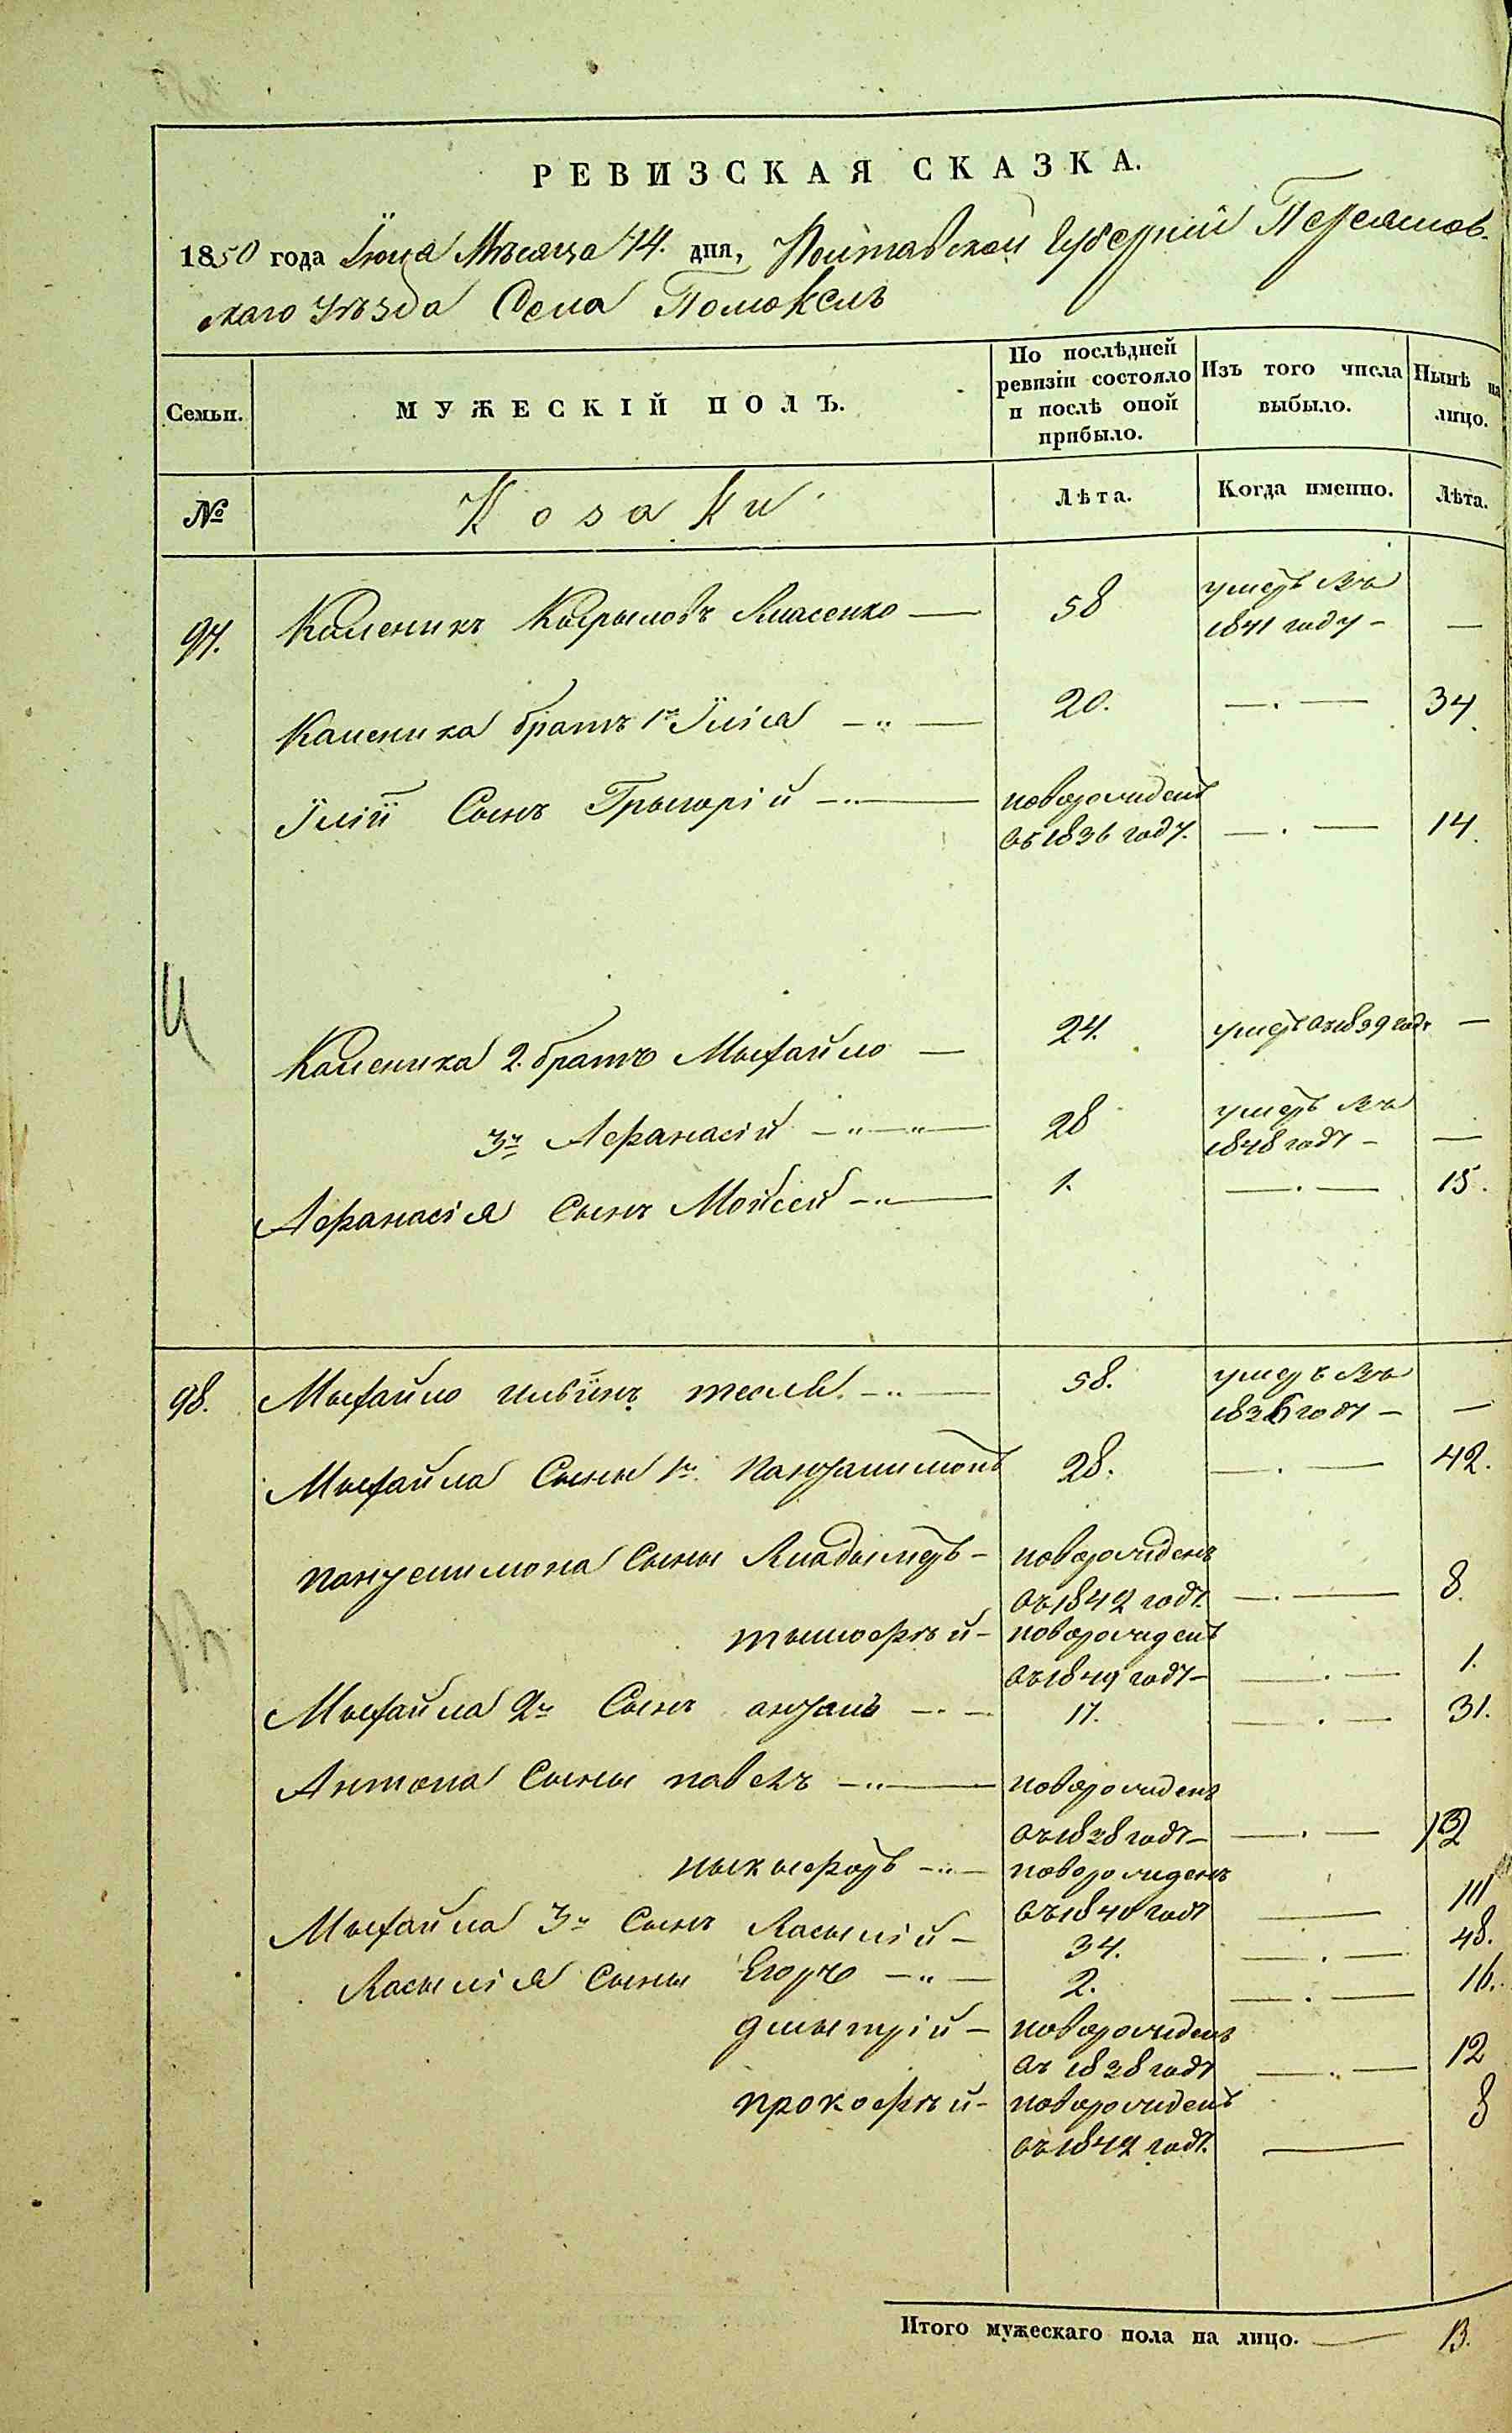 РЕВИЗСКАЯ СКАЗКА.
1850 года Июня Мѣсяца 14. дня, Полтавской Губерніи Переяслов-
скаго уѣзда Села Помокель
Семьи. МУЖЕСКІЙ ПОЛЪ. По послѣдней ревизіи состояло и послѣ оной прибыло. Изъ того числа выбыло. Нынѣ на лицо.
№ Козаки Лѣта. Когда именно. Лѣта.
97. Каленикъ Кырыловъ Власенко — 58 умеръ въ 1841 году — —
Каленика братъ 1й Ілія — 20. — 34.
Іліи Сынъ Грыгорій — новорожденъ въ 1836 году. — 14.
Каленика 2. братъ Мыхайло — 24. умеръ въ 1839 году —
3й Афанасій — 28 умеръ въ 1848 году — —
Афанасія Сынъ Мойсей — 1. — 15.
98. Мыхайло Ильинъ — 58. умеръ въ 1836 году — —
Мыхайла Сыны 1й Пантелимонъ 28. — 42.
Пантелимона Сыны Владымеръ — новорожденъ въ 1842 году — 8.
тымофѣй — новорожденъ въ 1849 году — 1.
Мыхайла 2й Сынъ антонъ — 17. — 31.
Антона Сыны павелъ — новорожденъ въ 1838 году — 12
ныкыфоръ — новорожденъ въ 1840 году — 10
Мыхайла 3й Сынъ Васылій — 34. — 48.
Васылія Сыны Егоръ — 2. — 16.
дмытрій — новорожденъ въ 1838 году — 12
прокофѣй — новорожденъ въ 1842 году. — 8
Итого мужескаго пола на лицо. — 13.